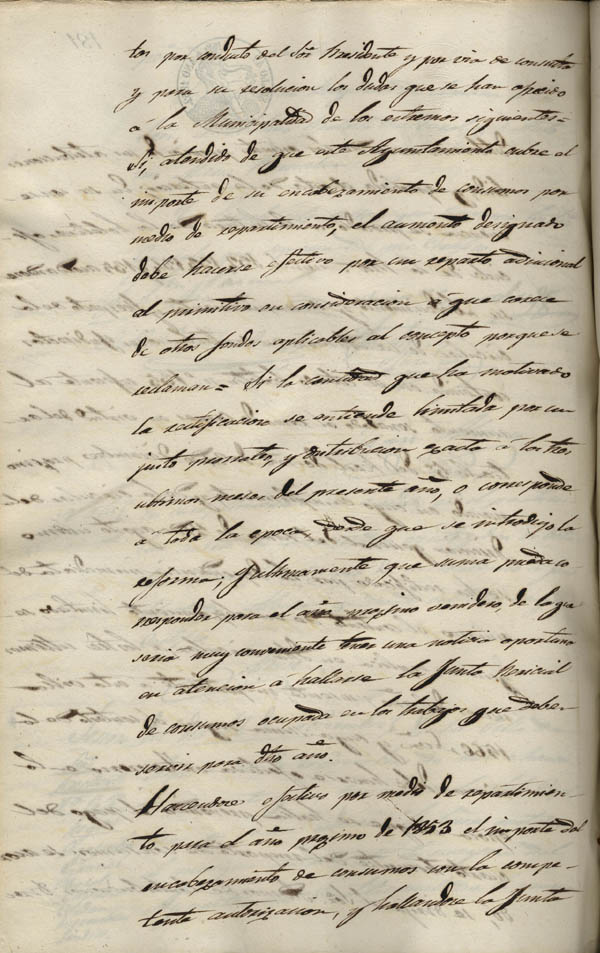 tos por conducto del Sor. Presidente y por via de consulta
y para su resolucion los dudas que se han ofrecido
á la Municipalidad de los estremos siguientes=
Si, atendido de que este Ayuntamiento cubre el
importe de su encabezamiento de consumos por
medio de repartimiento, el aumento designado
debe hacerse efectivo por un reparto adicional
al primitivo en consideracion á que carece
de otros fondos aplicables al concepto porque se
reclaman= Si la cantidad que ha motivado
la rectificacion se entiende limitada por un
justo prorrateo, y distribucion exacta á los tres
ultimos meses del presente año, o corresponde
a toda la epoca desde que se introdujo la
reforma; y ultimamente que suma pueda co-
rresponder para el año proximo venidero, de lo que
seria muy conveniente tener una noticia oportuna
en atencion á hallarse la Junta Pericial
de consumos ocupada en los trabajos que debe-
servir para dho. año.
Haciendose efectivo por medio de repartimien-
to para el año proximo de 1853 el importe del
encabezamiento de consumos con la compe-
tente autorizacion, y hallandose la Junta